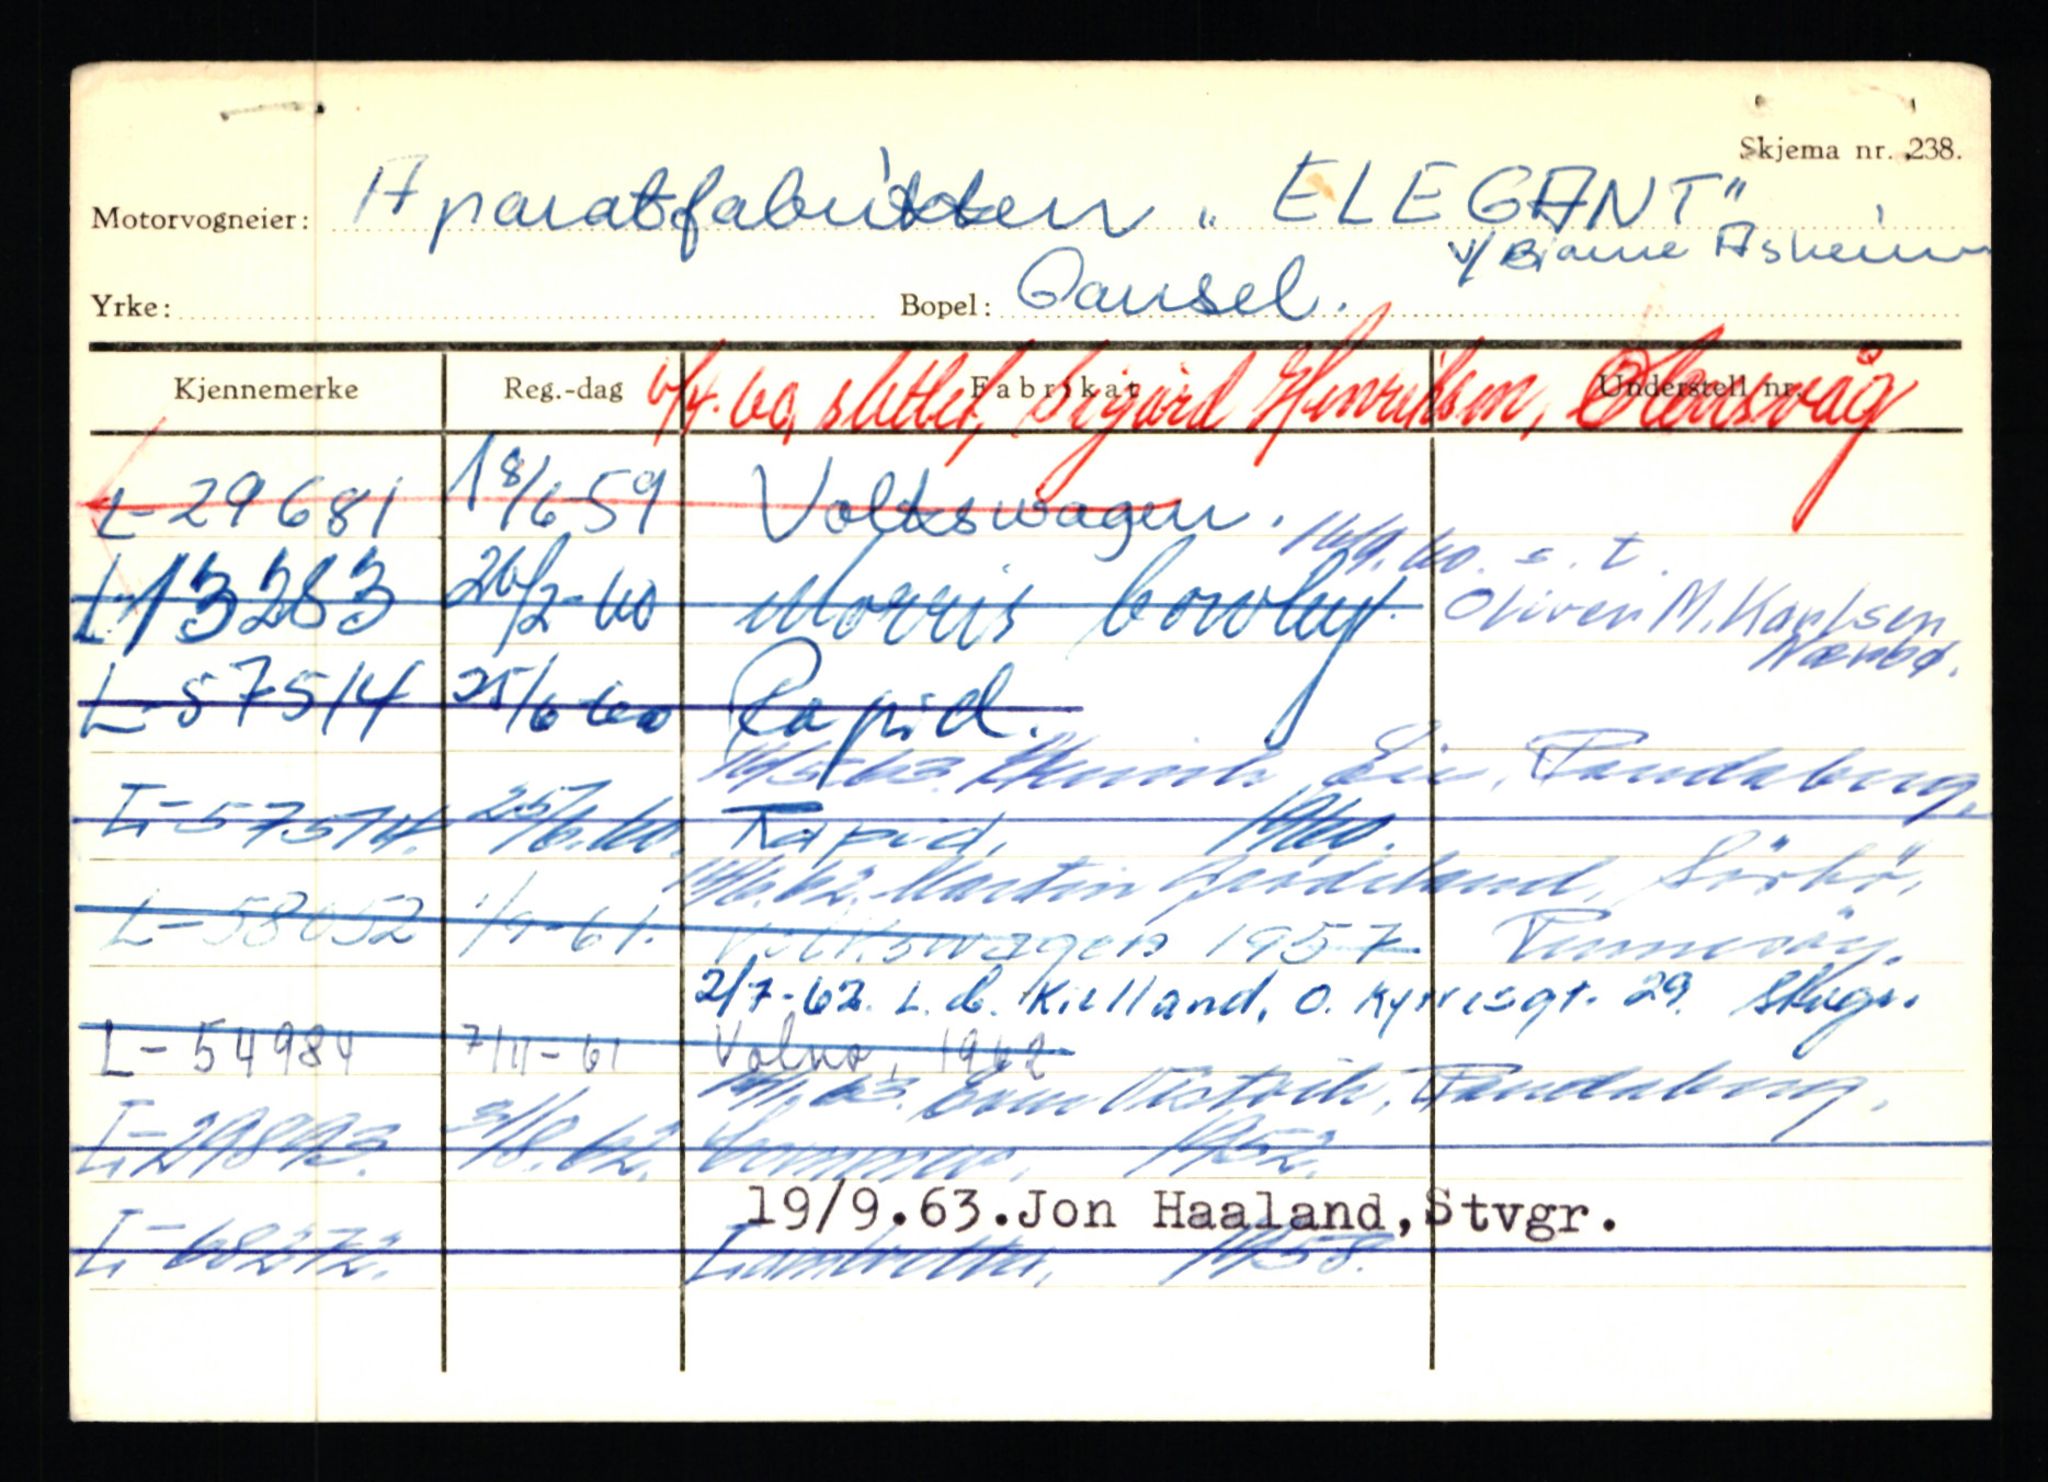 Skjema nr. 238.
Motorvogneier: Aparatfabrikken „ELEGANT"
v/ Bjarne Asheim
Yrke: Bopel: Gausel.
Kjennemerke Reg.-dag Fabrikat Understell nr.
6/4.60, slettet, Sigurd Henriksen, Ølensvåg
L-29681 18/6 59 Volkswagen.
16/9.60. s. t.
L-13283 26/2-60 Morris Cowley.
Oliver M. Karlsen
Nærbø.
L-57514 25/6 60 Rapid.
Eie, Randaberg,
L-57514. 25/6.60. Rapid, 1960.
14/6.62. Martin Grødeland, Sörbö,
L-58052 1/9-61. Volkswagen 1957 Rennesöy.
2/7-62. L. C. Kielland, O. Kyrresgt. 29 Stvgr.
L-54984 7/11-61 Volvo, 1962
Randaberg,
L-29893. 3/8.62. 1952.
19/9.63.Jon Haaland,Stvgr.
L-68272. Lambretta, 1958.